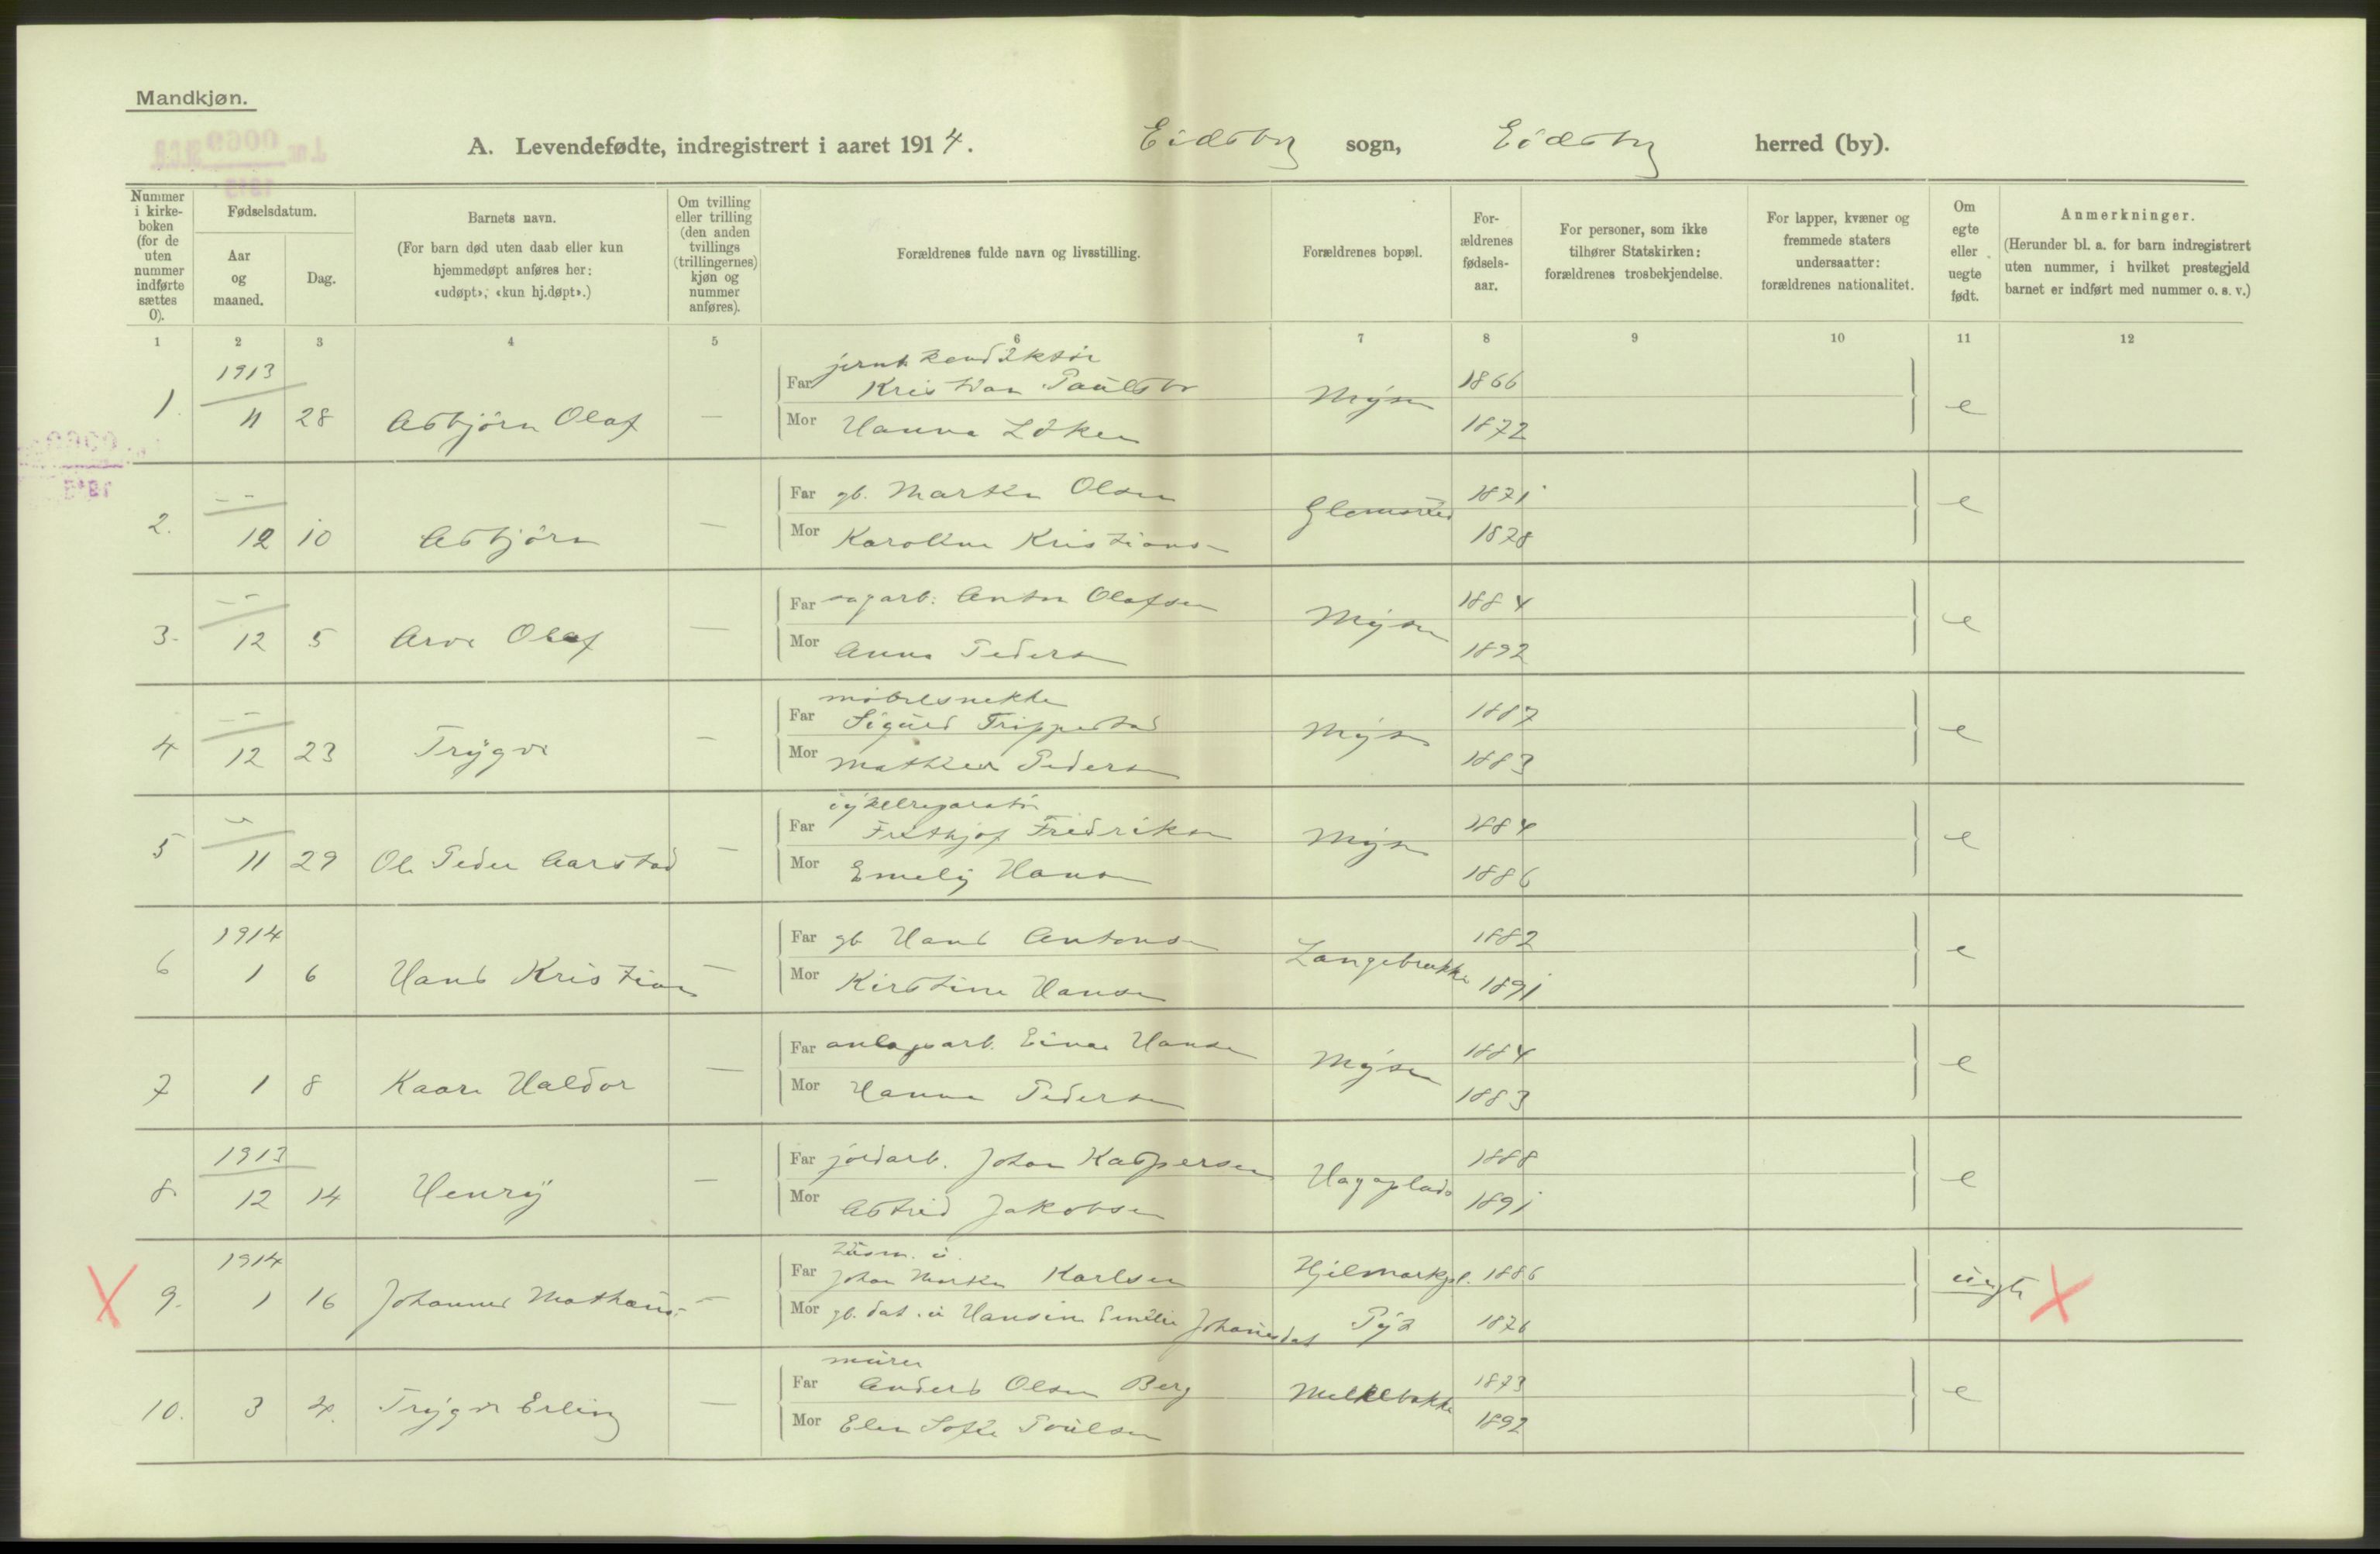 Mandkjøn.
A. Levendefødte, indregistrert i aaret 1914. Eidsberg sogn, Eidsberg herred (by).
Nummer i kirke- boken (for de uten nummer indførte sættes 0).
Fødselsdatum.
Aar og maaned.
Dag.
Barnets navn.
(For barn død uten daab eller kun hjemmedøpt anføres her: «udøpt», «kun hj.døpt».)
Om tvilling eller trilling (den anden tvillings (trillingernes) kjøn og nummer anføres).
Forældrenes fulde navn og livsstilling.
Forældrenes bopæl.
For- ældrenes fødsels- aar.
For personer, som ikke tilhører Statskirken: forældrenes trosbekjendelse.
For lapper, kvæner og fremmede staters undersaatter: forældrenes nationalitet.
Om egte eller uegte født.
Anmerkninger.
(Herunder bl. a. for barn indregistrert uten nummer, i hvilket prestegjeld barnet er indført med nummer o. s. v.)
1 2 3 4 5 6 7 8 9 10 11 12
1913 jernb. konduktør
Far Kristian Paulsbr 1866
1. 11 28 Asbjörn Olaf — Mysen e
Mor Hanna Löken 1872
— — Far gb. Martin Olsen 1871
2. 12 10 Asbjörn — Glomsrud e
Mor Karoline Kristians 1878
— — Far sagarb. Anton Olafsen 1884
3. 12 5 Arve Olaf — Mysen e
Mor Anna Peders 1892
— — möbelsnekker
Far Sigurd Trippestad 1887
4 12 23 Trygve — Mysen e
Mor Mathea Peders 1883
— cykelreparatör
Far Frithjof Fredriks 1884
5 11 29 Ole Peder Aarstad — Mysen e
Mor Emely Hans 1886
1914 Far gb Hans Antons 1882
6 1 6 Hans Kristian — Langebrekke e
Mor Kirstine Hansen 1891
Far anlagsarb. Einar Hansen 1884
7 1 8 Kaare Haldor — Mysen e
Mor Hanna Pedersen 1883
1913 Far jordarb. Johan Kaspersen 1888
8. 12 14 Henry — Hagaplads e
Mor Astrid Jakobsen 1891
1914 husm. u.
Far Johan Martin Karlsen Hjelmarkpl. 1886
9. 1 16 Johannes Mathæus — uegte
Mor gb. dat. u Hansine Emilie Johannesdat 1876
murer
Far Anders Olsen Berg 1873
10. 3 4. Trygve Erling — Melkebakke e
Mor Elen Sofie Poulsen 1892